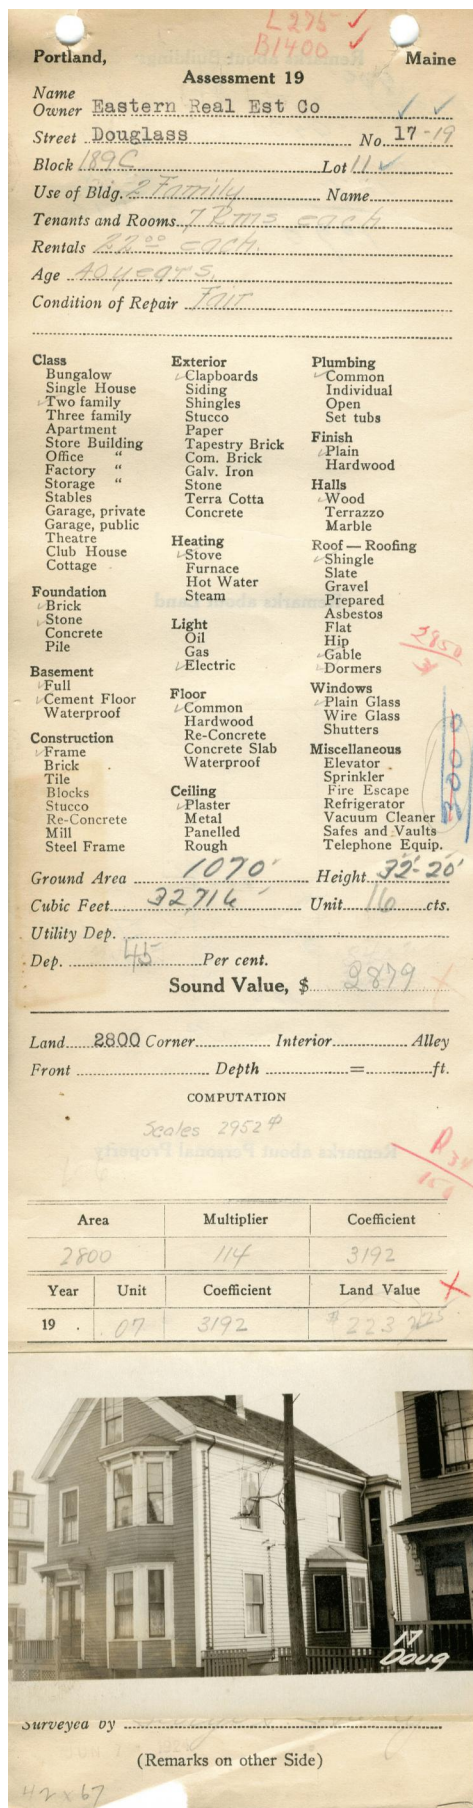 L 275 ✓
B 1400 ✓
Portland, Maine
Assessment 19
Name
Owner Eastern Real Est Co
Street Douglass No. 17-19
Block 189C Lot 11
Use of Bldg. 2 Family Name
Tenants and Rooms 7 Rms each
Rentals 22.00 each.
Age 40 years.
Condition of Repair Fair
Class
Bungalow
Single House
✓Two family
Three family
Apartment
Store Building
Office “
Factory “
Storage “
Stables
Garage, private
Garage, public
Theatre
Club House
Cottage
Foundation
✓Brick
✓Stone
Concrete
Pile
Basement
✓Full
✓Cement Floor
Waterproof
Construction
✓Frame
Brick
Tile
Blocks
Stucco
Re-Concrete
Mill
Steel Frame
Exterior
✓Clapboards
Siding
Shingles
Stucco
Paper
Tapestry Brick
Com. Brick
Galv. Iron
Stone
Terra Cotta
Concrete
Heating
✓Stove
Furnace
Hot Water
Steam
Light
Oil
Gas
✓Electric
Floor
✓Common
Hardwood
Re-Concrete
Concrete Slab
Waterproof
Ceiling
✓Plaster
Metal
Panelled
Rough
Plumbing
✓Common
Individual
Open
Set tubs
Finish
✓Plain
Hardwood
Halls
✓Wood
Terrazzo
Marble
Roof — Roofing
✓Shingle
Slate
Gravel
Prepared
Asbestos
Flat
Hip
✓Gable
✓Dormers
2950
Windows
✓Plain Glass
Wire Glass
Shutters
Miscellaneous
Elevator
Sprinkler
Fire Escape
Refrigerator
Vacuum Cleaner
Safes and Vaults
Telephone Equip.
3000
Ground Area 1070' Height 32'-20'
Cubic Feet 32716' Unit 16 cts.
Utility Dep.
Dep. 45 Per cent.
Sound Value, $ 2879
Land 2800 Corner Interior Alley
Front Depth = ft.
COMPUTATION
Scales 2952
Area Multiplier Coefficient
2800 114 3192
Year Unit Coefficient Land Value
19 . 07 3192 $ 223
17
Doug
Surveyed by
(Remarks on other Side)
42 x 67